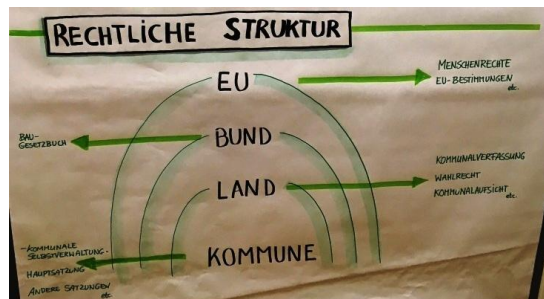 RECHTLICHE STRUKTUR
EU
MENSCHENRECHTE
EU-BESTIMMUNGEN
etc.
BAU-
GESETZBUCH
BUND
KOMMUNALVERFASSUNG
WAHLRECHT
KOMMUNALAUFSICHT
etc.
LAND
KOMMUNE
-KOMMUNALE
SELBSTVERWALTUNG-
HAUPTSATZUNG
ANDERE SATZUNGEN
etc